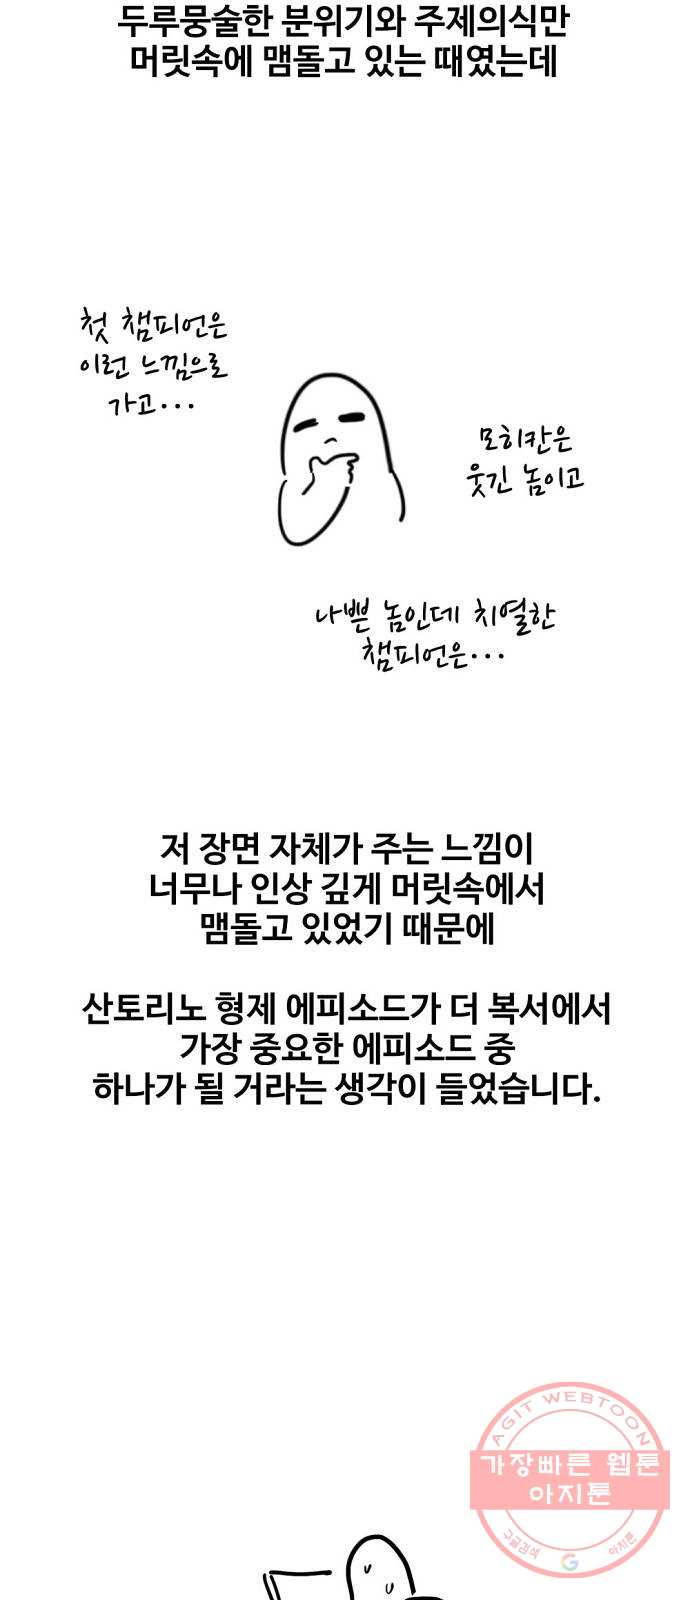 두루뭉술한 분위기와 주제의식만
머릿속에 맴돌고 있는 때였는데
첫 챔피언은
이런 느낌으로
가고...
모히칸은
웃긴 놈이고
나쁜 놈인데 치열한
챔피언은...
저 장면 자체가 주는 느낌이
너무나 인상 깊게 머릿속에서
맴돌고 있었기 때문에
산토리노 형제 에피소드가 더 복서에서
가장 중요한 에피소드 중
하나가 될 거라는 생각이 들었습니다.
AGIT WEBTOON
가장빠른 웹툰
아지툰
구글검색 G 아지툰